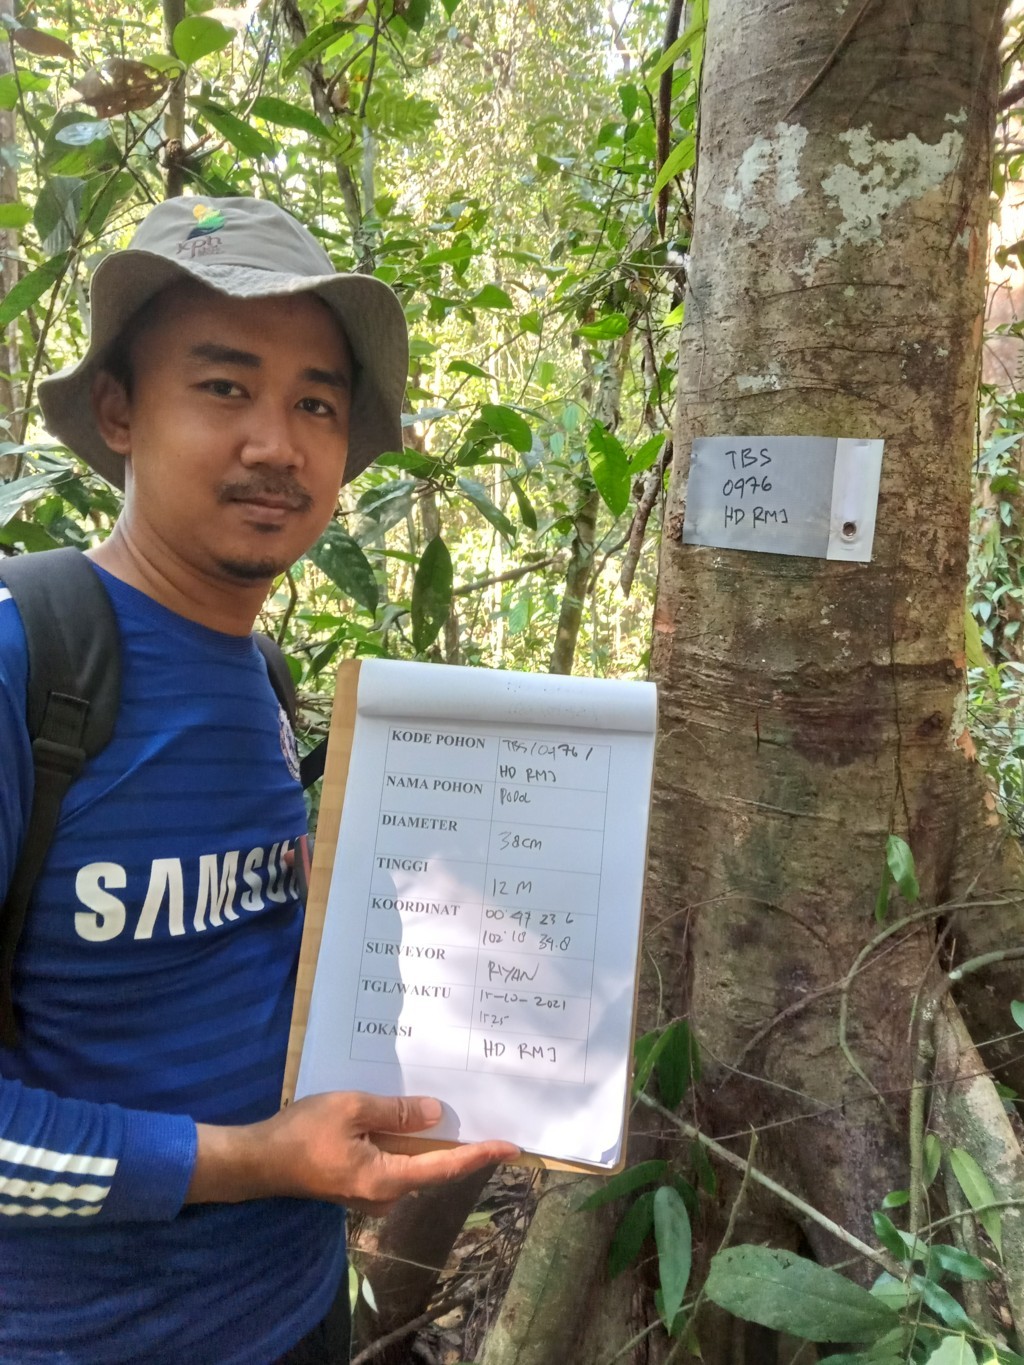 kph
TBS
0976
HD RMJ
SAMSUN
KODE POHON TBS/0976/
HD RMJ
NAMA POHON PODOL
DIAMETER 38CM
TINGGI 12 M
KOORDINAT 00° 47 23 6
102° 18 39.8
SURVEYOR RIYAN
TGL/WAKTU 15-10-2021
15.25
LOKASI HD RMJ